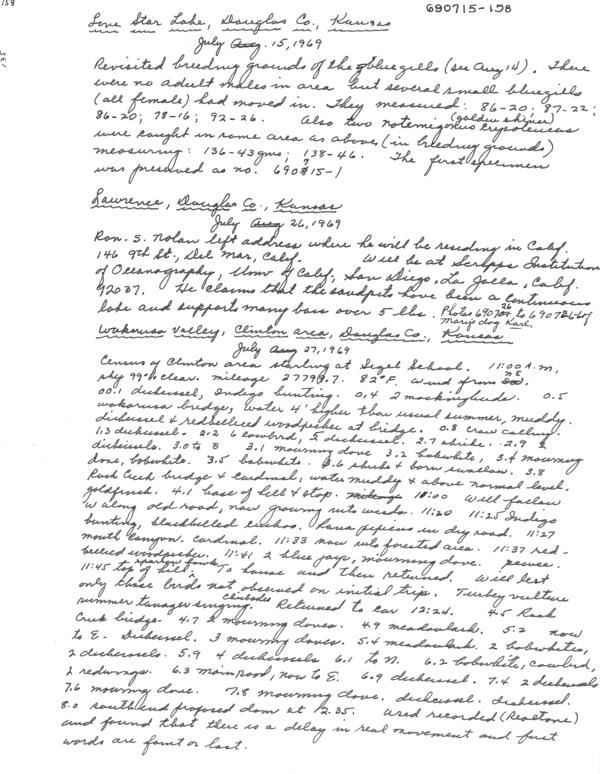 158
690715-158
Lone Star Lake, Douglas Co., Kansas
July Aug. 15, 1969
Revisited breeding grounds of the bluegills (see Aug 14). There
were no adult males in area but several small bluegills
(all female) had moved in. They measured: 86-20; 87-22;
86-20; 78-16; 92-26. Also two notemigonus crysoleucas
(golden shiner)
were caught in same area as above (in breeding grounds)
measuring: 136-43gms; 138-46. The first specimen
was preserved as no. 690715-1
Lawrence, Douglas Co., Kansas
July Aug 26, 1969
Ron. S. Nolan left address where he will be residing in Calif.
146 9th St., Del Mar, Calif. Will be at Scripps Institution
of Oceanography, Univ of Calif, San Diego, La Jolla, Calif.
92037. He claims that the sandpits have been a continuous
lake and supports many bass over 5 lbs. Photos
Marj's dog Karl,
Wakarusa Valley, Clinton area, Douglas Co., Kansas
July Aug 27, 1969
Census of Clinton area starting at Sigel School. 11:00 A.M,
sky 99% clear. mileage 82°F. Wind from NE
00.1 dickcissel, Indigo bunting. 0.4 2 mockingbirds. 0.5
wakarusa bridge, water 4' higher than usual summer, muddy.
dickcissel & redbellied woodpecker at bridge. 0.8 crow calling.
1.3 dickcissel. 2.2 6 cowbird, 2 dickcissel. 2.7 shrike. 2.9 2
dickcissels. 3.0 to S 3.1 mourning dove 3.2 bobwhite, 3.4 mourning
dove, bobwhite. 3.5 bobwhite. 3.6 shrike & barn swallow. 3.8
Rock Creek bridge & cardinal, water muddy & above normal level,
goldfinch. 4.1 base of hill & stop. Will follow
W along old road, now growing into weeds. 11:20 11:25 Indigo
bunting, blackbilled cuckoo. Rana pipiens in dry road. 11:27
mouth canyon. cardinal. 11:33 now into forested area. 11:37 red-
bellied woodpecker. 11:41 2 blue jays, mourning dove. peewee.
11:45 top of hill. sparrow hawk To house and then returned. Will list
only those birds not observed on initial trip. Turkey vulture
summer tanager singing. chickadee Returned to car 12:24. 4.5 Rock
Creek bridge. 4.7 2 mourning doves. 4.9 meadowlark. 5.2 now
to E- Dickcissel. 3 mourning doves. 5.4 meadowlark. 2 bobwhites,
2 dickcissels. 5.9 4 dickcissels 6.1 to N. 6.2 bobwhite, cowbird,
2 redwings. 6.3 main road, now to E. 6.9 dickcissel. 7.4 2 dickcissels
7.6 mourning dove. 7.8 mourning dove. dickcissel. Dickcissel.
8.0 south end proposed dam at 12:35. Used recorded (Realtone)
and found that there is a delay in real movement and first
words are faint or lost.